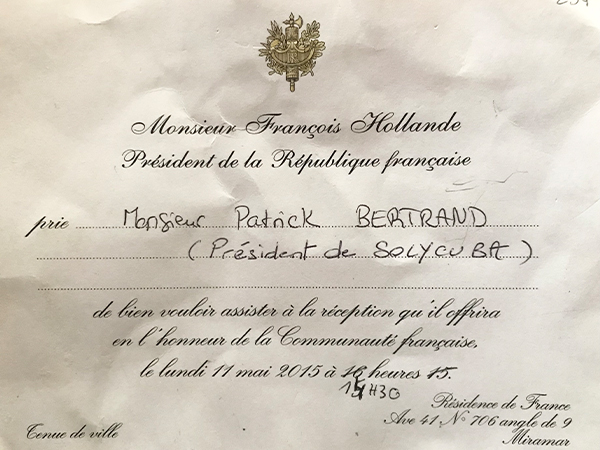 Monsieur François Hollande
Président de la République française
prie Monsieur Patrick BERTRAND
(Président de SOLYCUBA)
de bien vouloir assister à la réception qu'il offrira
en l'honneur de la Communauté française,
le lundi 11 mai 2015 à heures 15.
H30
Résidence de France
Ave 41 N° 706 angle de 9
Miramar
Tenue de ville